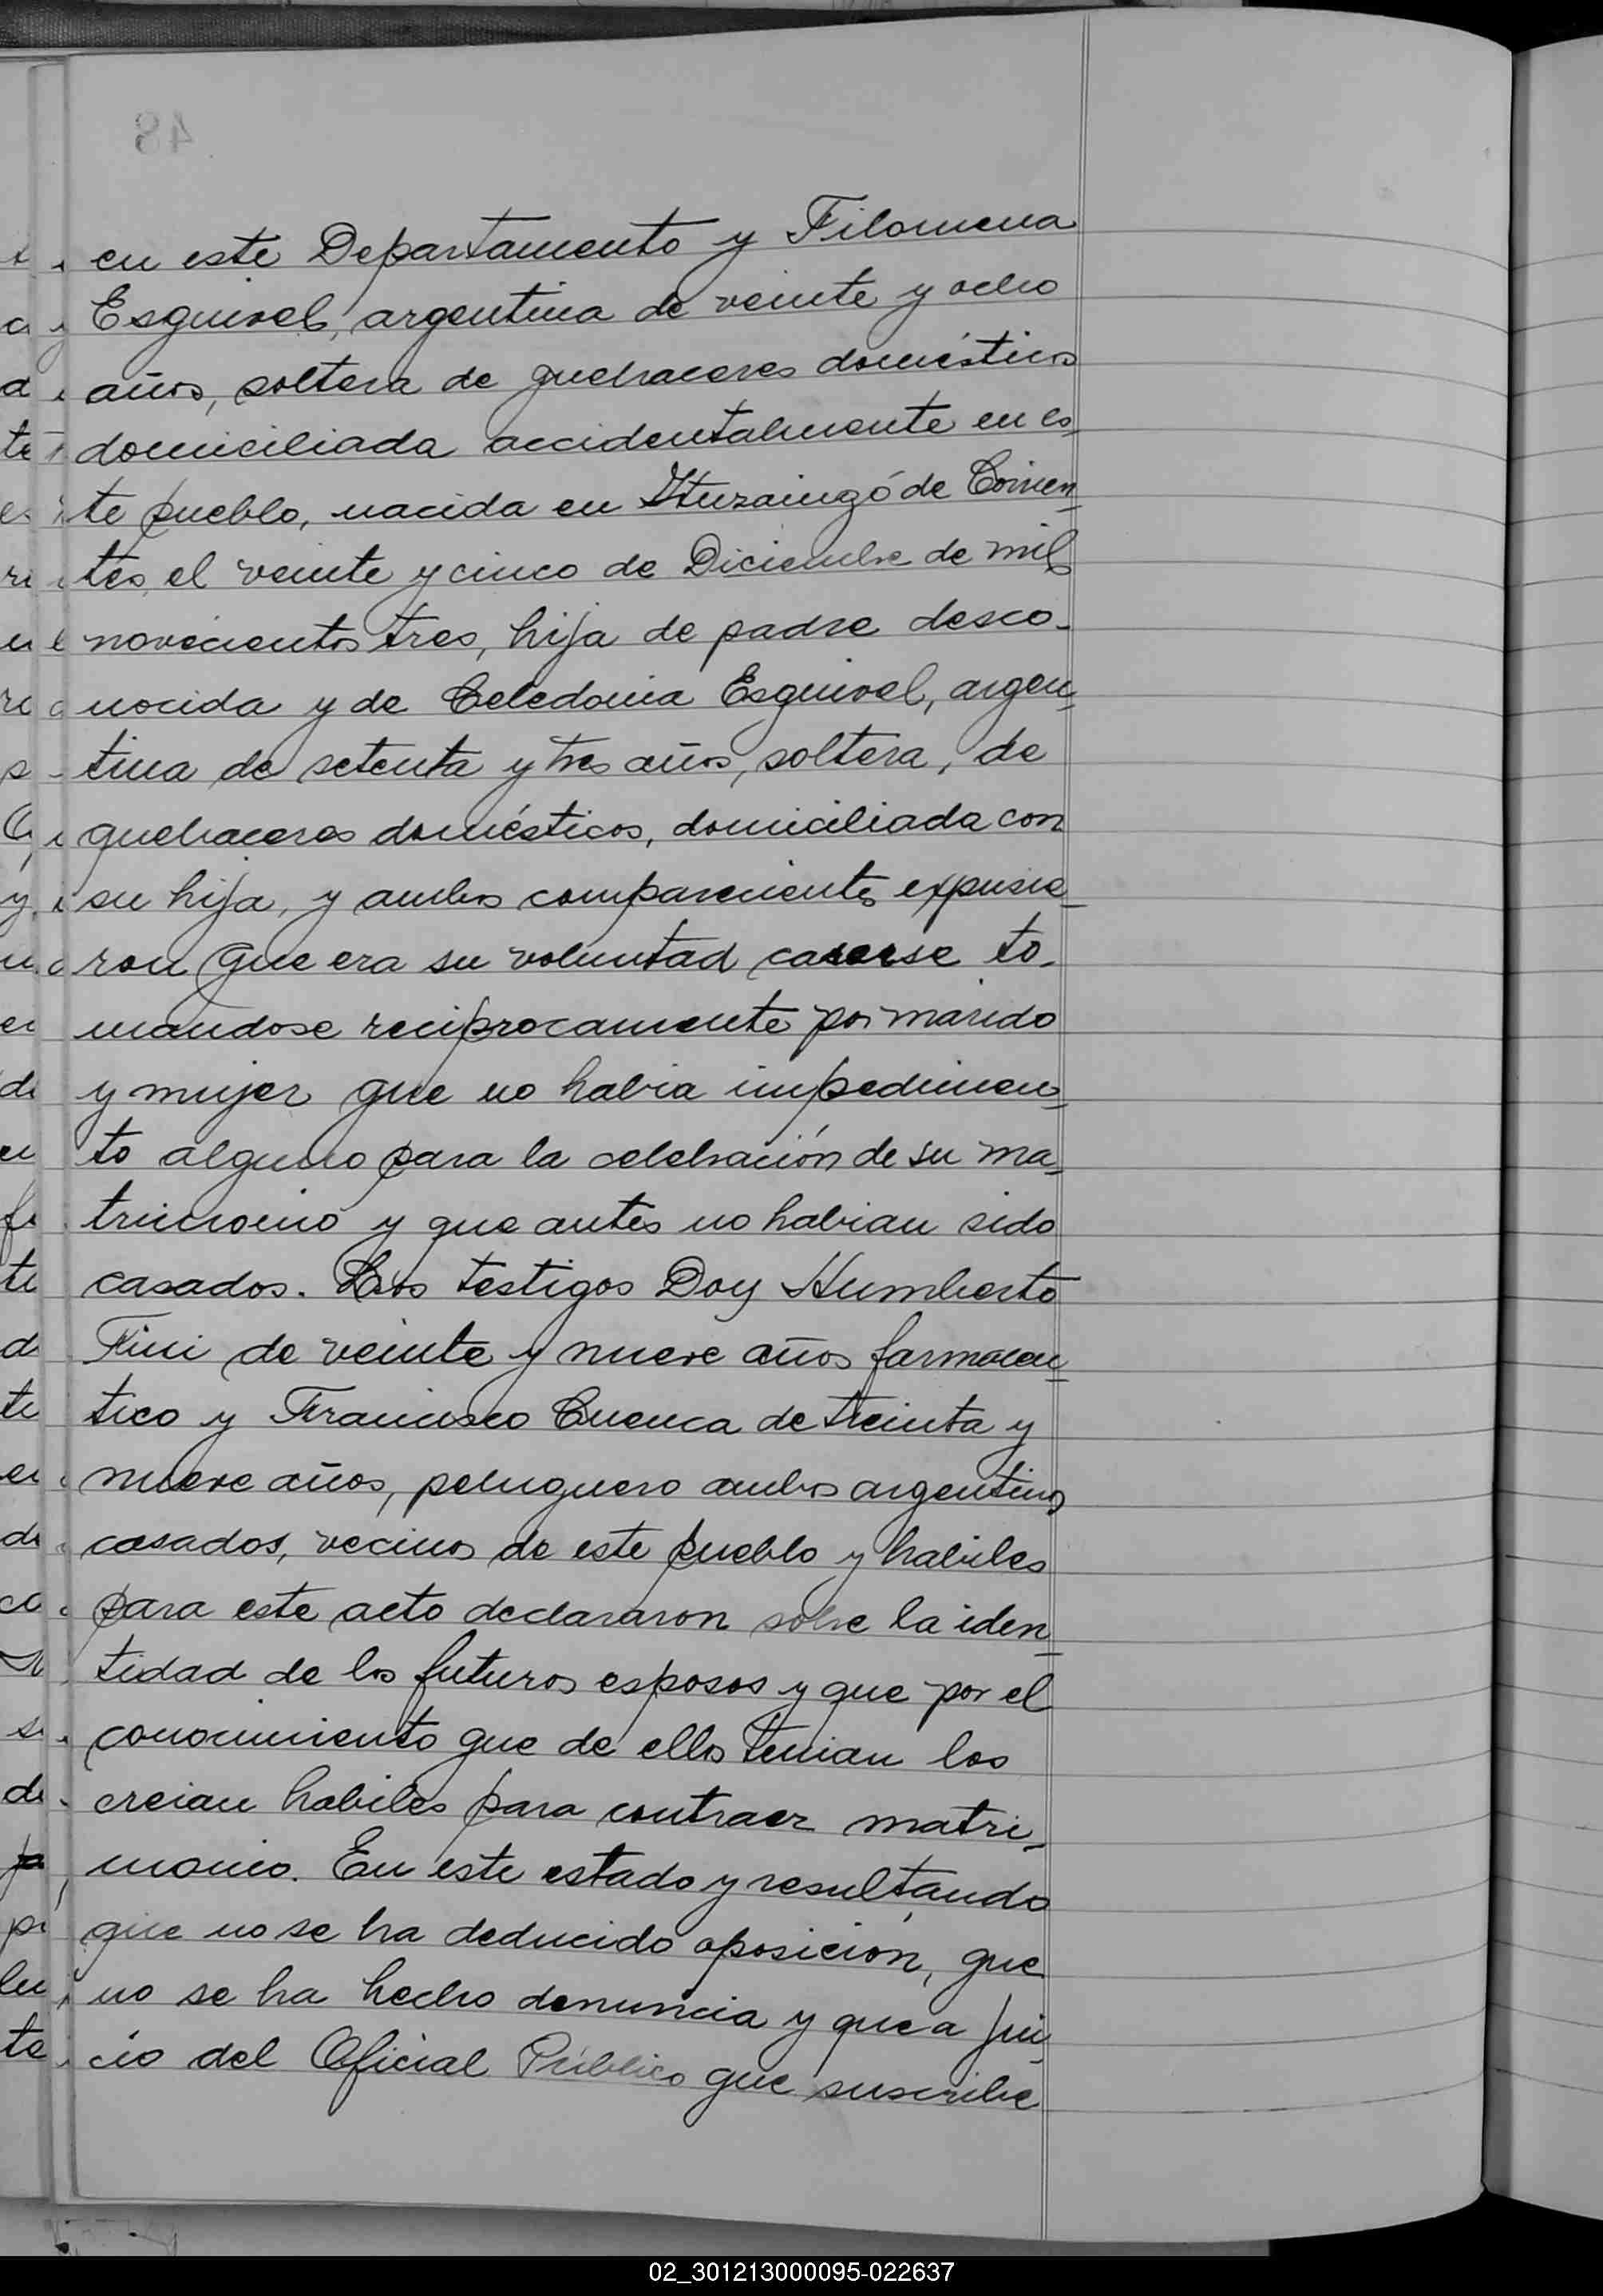 48
en este Departamento y Filomena
Esquivel, argentina de veinte y ocho
años, soltera de quehaceres domésticos
domiciliada accidentalmente en es-
te pueblo, nacida en Ituzaingó de Corrien-
tes, el veinte y cinco de Diciembre de mil
novecientos tres, hija de padre desco-
nocida y de Celedonia Esquivel, argen-
tina de setenta y tres años, soltera, de
quehaceres domésticos, domiciliada con
su hija, y ambos comparecientes expusie-
ron que era su voluntad casarse to-
mandose reciprocamente por marido
y mujer que no habia impedimen-
to alguno para la celebración de su ma-
trimonio y que antes no habian sido
casados. Los testigos Doy Humberto
Fini de veinte y nueve años farmaceu-
tico y Francisco Cuenca de treinta y
nueve años, peluquero ambos argentinos
casados, vecinos de este pueblo y habiles
para este acto declararon sobre la iden-
tidad de los futuros esposos y que por el
conocimiento que de ellos tenian los
creian habiles para contraer matri-
monio. En este estado y resultando
que no se ha deducido oposición, que
no se ha hecho denuncia y que a jui-
cio del Oficial Público que suscribe
02_301213000095-022637